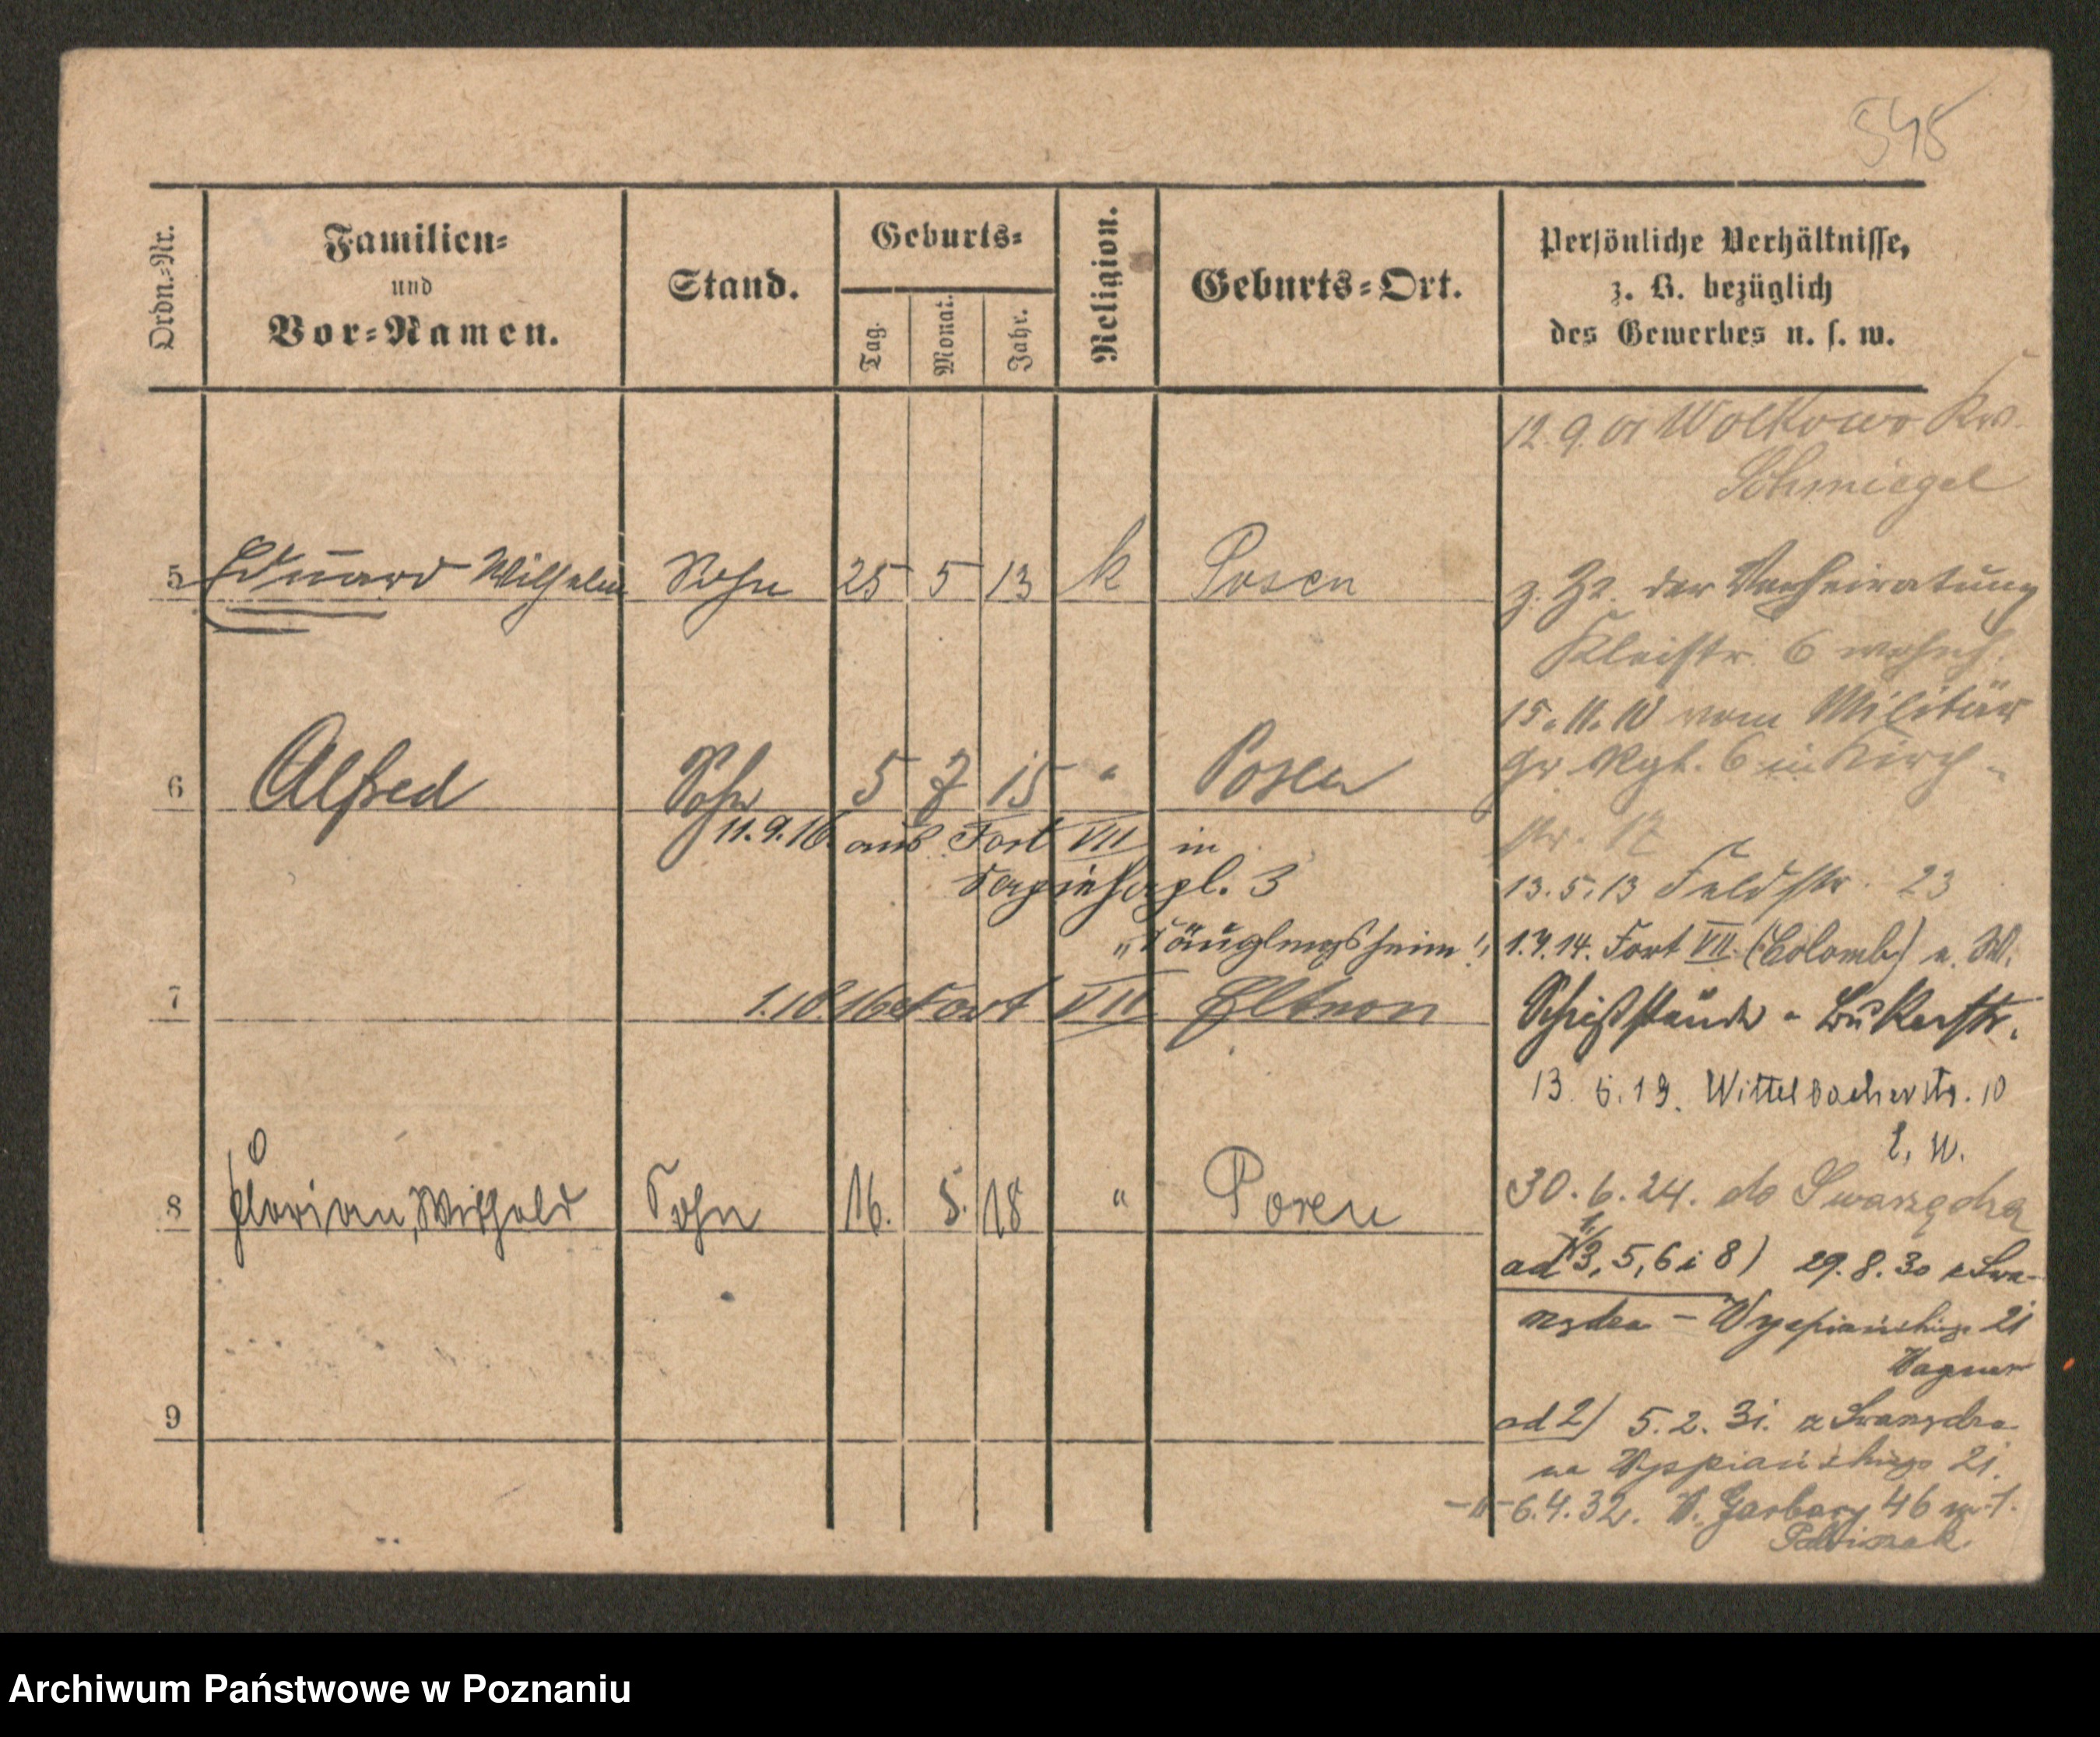 545
Ordn.=Nr.
Familien=
und
Vor=Namen.
Stand.
Geburts=
Tag.
Monat.
Jahr.
Religion.
Geburts=Ort.
Persönliche Verhältnisse,
z. B. bezüglich
des Gewerbes u. s. w.
12.9.01 Wolkowo Krs.
Schmiegel
5 Eduard Wilhelm Sohn 25 5 13 k Posen
z. Zt. der Verheiratung
Kleiststr. 6 wohnh.
15.11.10 vom Militär
Gr. Rgt. 6 in Kirch-
str. 17
6 Alfred Sohn 5 7 15 " Posen
11.9.16. aus Fort VII in
3
"Säuglingsheim"
13.5.13 Feldstr. 23
1.4.14. Fort VII. (Colomb) a. W.
Schießstände - Bukerstr.
7 1.10.16 Fort VII Eltern
13. 5. 19. Wittelsbacherstr. 10
E. W.
8 Florian, Withold Sohn 16. 5. 18 " Posen
30. 6. 24. do Swarzędza
ad 1, 3, 5, 6 i 8) 29. 8. 30 z Swa-
rzędza - Wyspiańskiego 21
Wagner
9
ad 2) 5. 2. 31. z Swarzędza
na Wyspiańskiego 21.
-"- 6.4.32. W. Garbary 46 m 1.
Archiwum Państwowe w Poznaniu